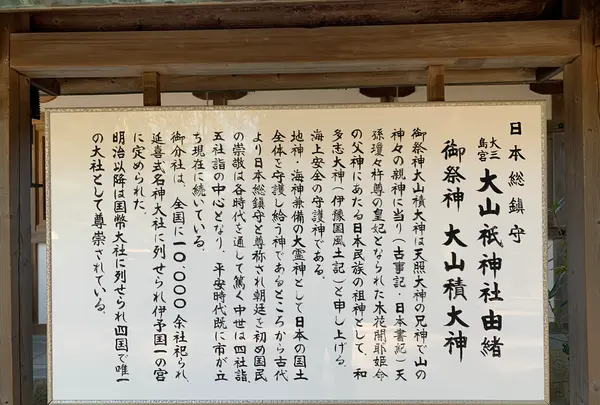 日本総鎮守
大三
島宮
大山祇神社由緒
御祭神 大山積大神
御祭神大山積大神は天照大神の兄神で山の
神々の親神に当り(古事記・日本書紀)天
孫瓊々杵尊の皇妃となられた木花開耶姫命
の父神にあたる日本民族の祖神として、和
多志大神(伊豫国風土記)と申し上げる。
海上安全の守護神である。
地神・海神兼備の大霊神として日本の国土
全体を守護し給う神であるところから古代
より日本総鎮守と尊称され朝廷を初め国民
の崇敬は各時代を通して篤く中世は四社詣、
五社詣の中心となり、平安時代既に市が立
ち現在に続いている。
御分社は、全国に一〇、〇〇〇余社祀られ、
延喜式名神大社に列せられ伊予国一の宮
に定められた。
明治以降は国幣大社に列せられ四国で唯一
の大社として尊崇されている。